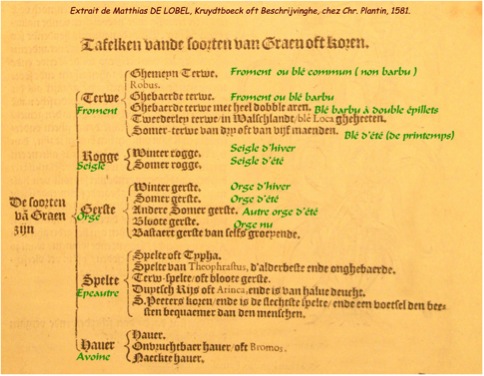 Extrait de Matthias DE LOBEL, Kruydtboeck oft Beschrijvinghe, chez Chr. Plantin, 1581.
Tafelken vande soorten van Graen oft koren.
De soorten
vā Graen
zijn
Terwe
Froment
Ghemeyn Terwe. Froment ou blé commun ( non barbu )
Robus.
Ghebaerde terwe. Froment ou blé barbu
Ghebaerde terwe met heel dobble aren. Blé barbu à double épillets
Tweederley terwe/in Walschlandt/blé Loca gheheeten.
Somer-terwe van dry oft van vijf maenden. Blé d'été (de printemps)
Rogge
Seigle
Winter rogge. Seigle d'hiver
Somer rogge. Seigle d'été
Gerste
Orge
Winter gerste. Orge d'hiver
Somer gerste. Orge d'été
Andere Somer gerste. Autre orge d'été
Bloote gerste. Orge nu
Bastaert gerste van selfs groeyende.
Spelte
Epeautre
Spelte oft Typha.
Spelte van Theophrastus, d'alderbeste ende onghebaerde.
Terw-spelte/oft bloote gerste.
Duytsch Rijs oft Arinca, ende is van halve deucht.
S. Peeters koren/ende is de slechtste spelte/ ende een voetsel den bee-
sten bequaemer dan den menschen.
Hauer
Avoine
Hauer.
Onvruchtbaer hauer/oft Bromos.
Naeckte hauer.